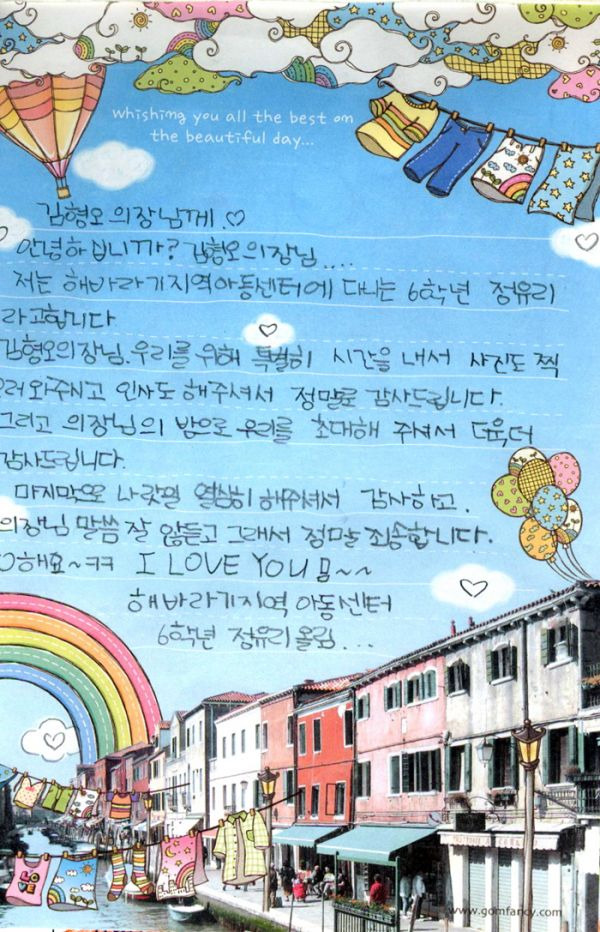 whishing you all the best on
the beautiful day...
김형오 의장님께 ♡
안녕하십니까? 김형오의장님....
저는 해바라기지역아동센터에 다니는 6학년 정유리
라고합니다
김형오의장님, 우리를 위해 특별히 시간을 내서 사진도 찍
으러 와주시고 인사도 해주셔서 정말로 감사드립니다.
그리고 의장님의 방으로 우리를 초대해 주셔서 더욱,더
감사드립니다.
마지막으로 나랏일 열심히 해주셔서 감사하고.
의장님 말씀 잘 않듣고 그래서 정말 죄송합니다.
해요~ㅋㅋ I LOVE YOU ~~
해바라기지역 아동센터
6학년 정유리 올림...
LOVE
www.gomfancy.com